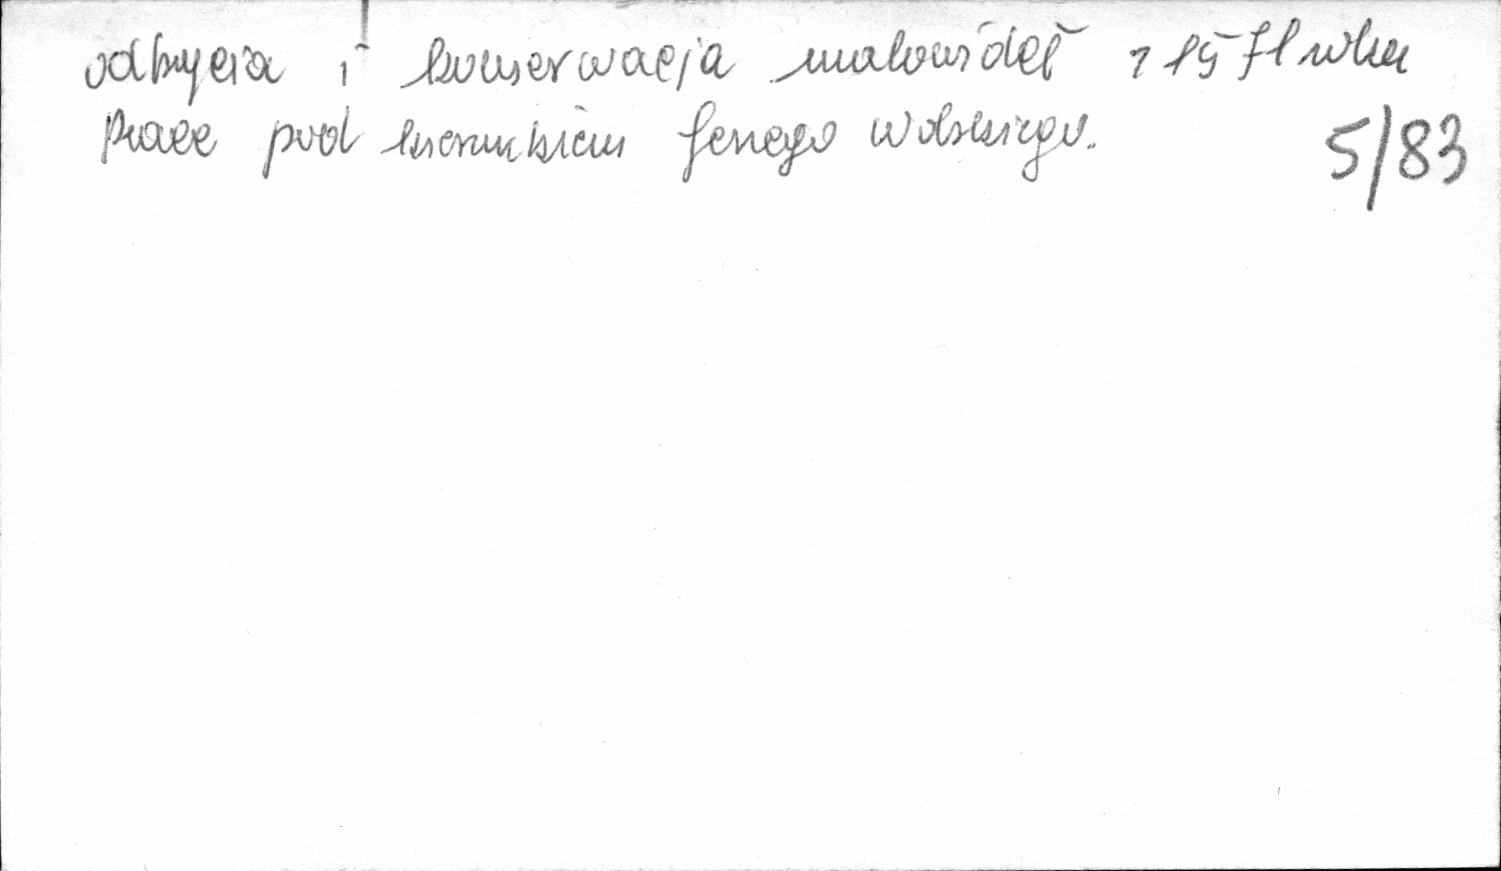 odkrycia i konserwacja malowideł z 1571 roku
Prace pod kierunkiem Jerzego Wolskiego.
5/83